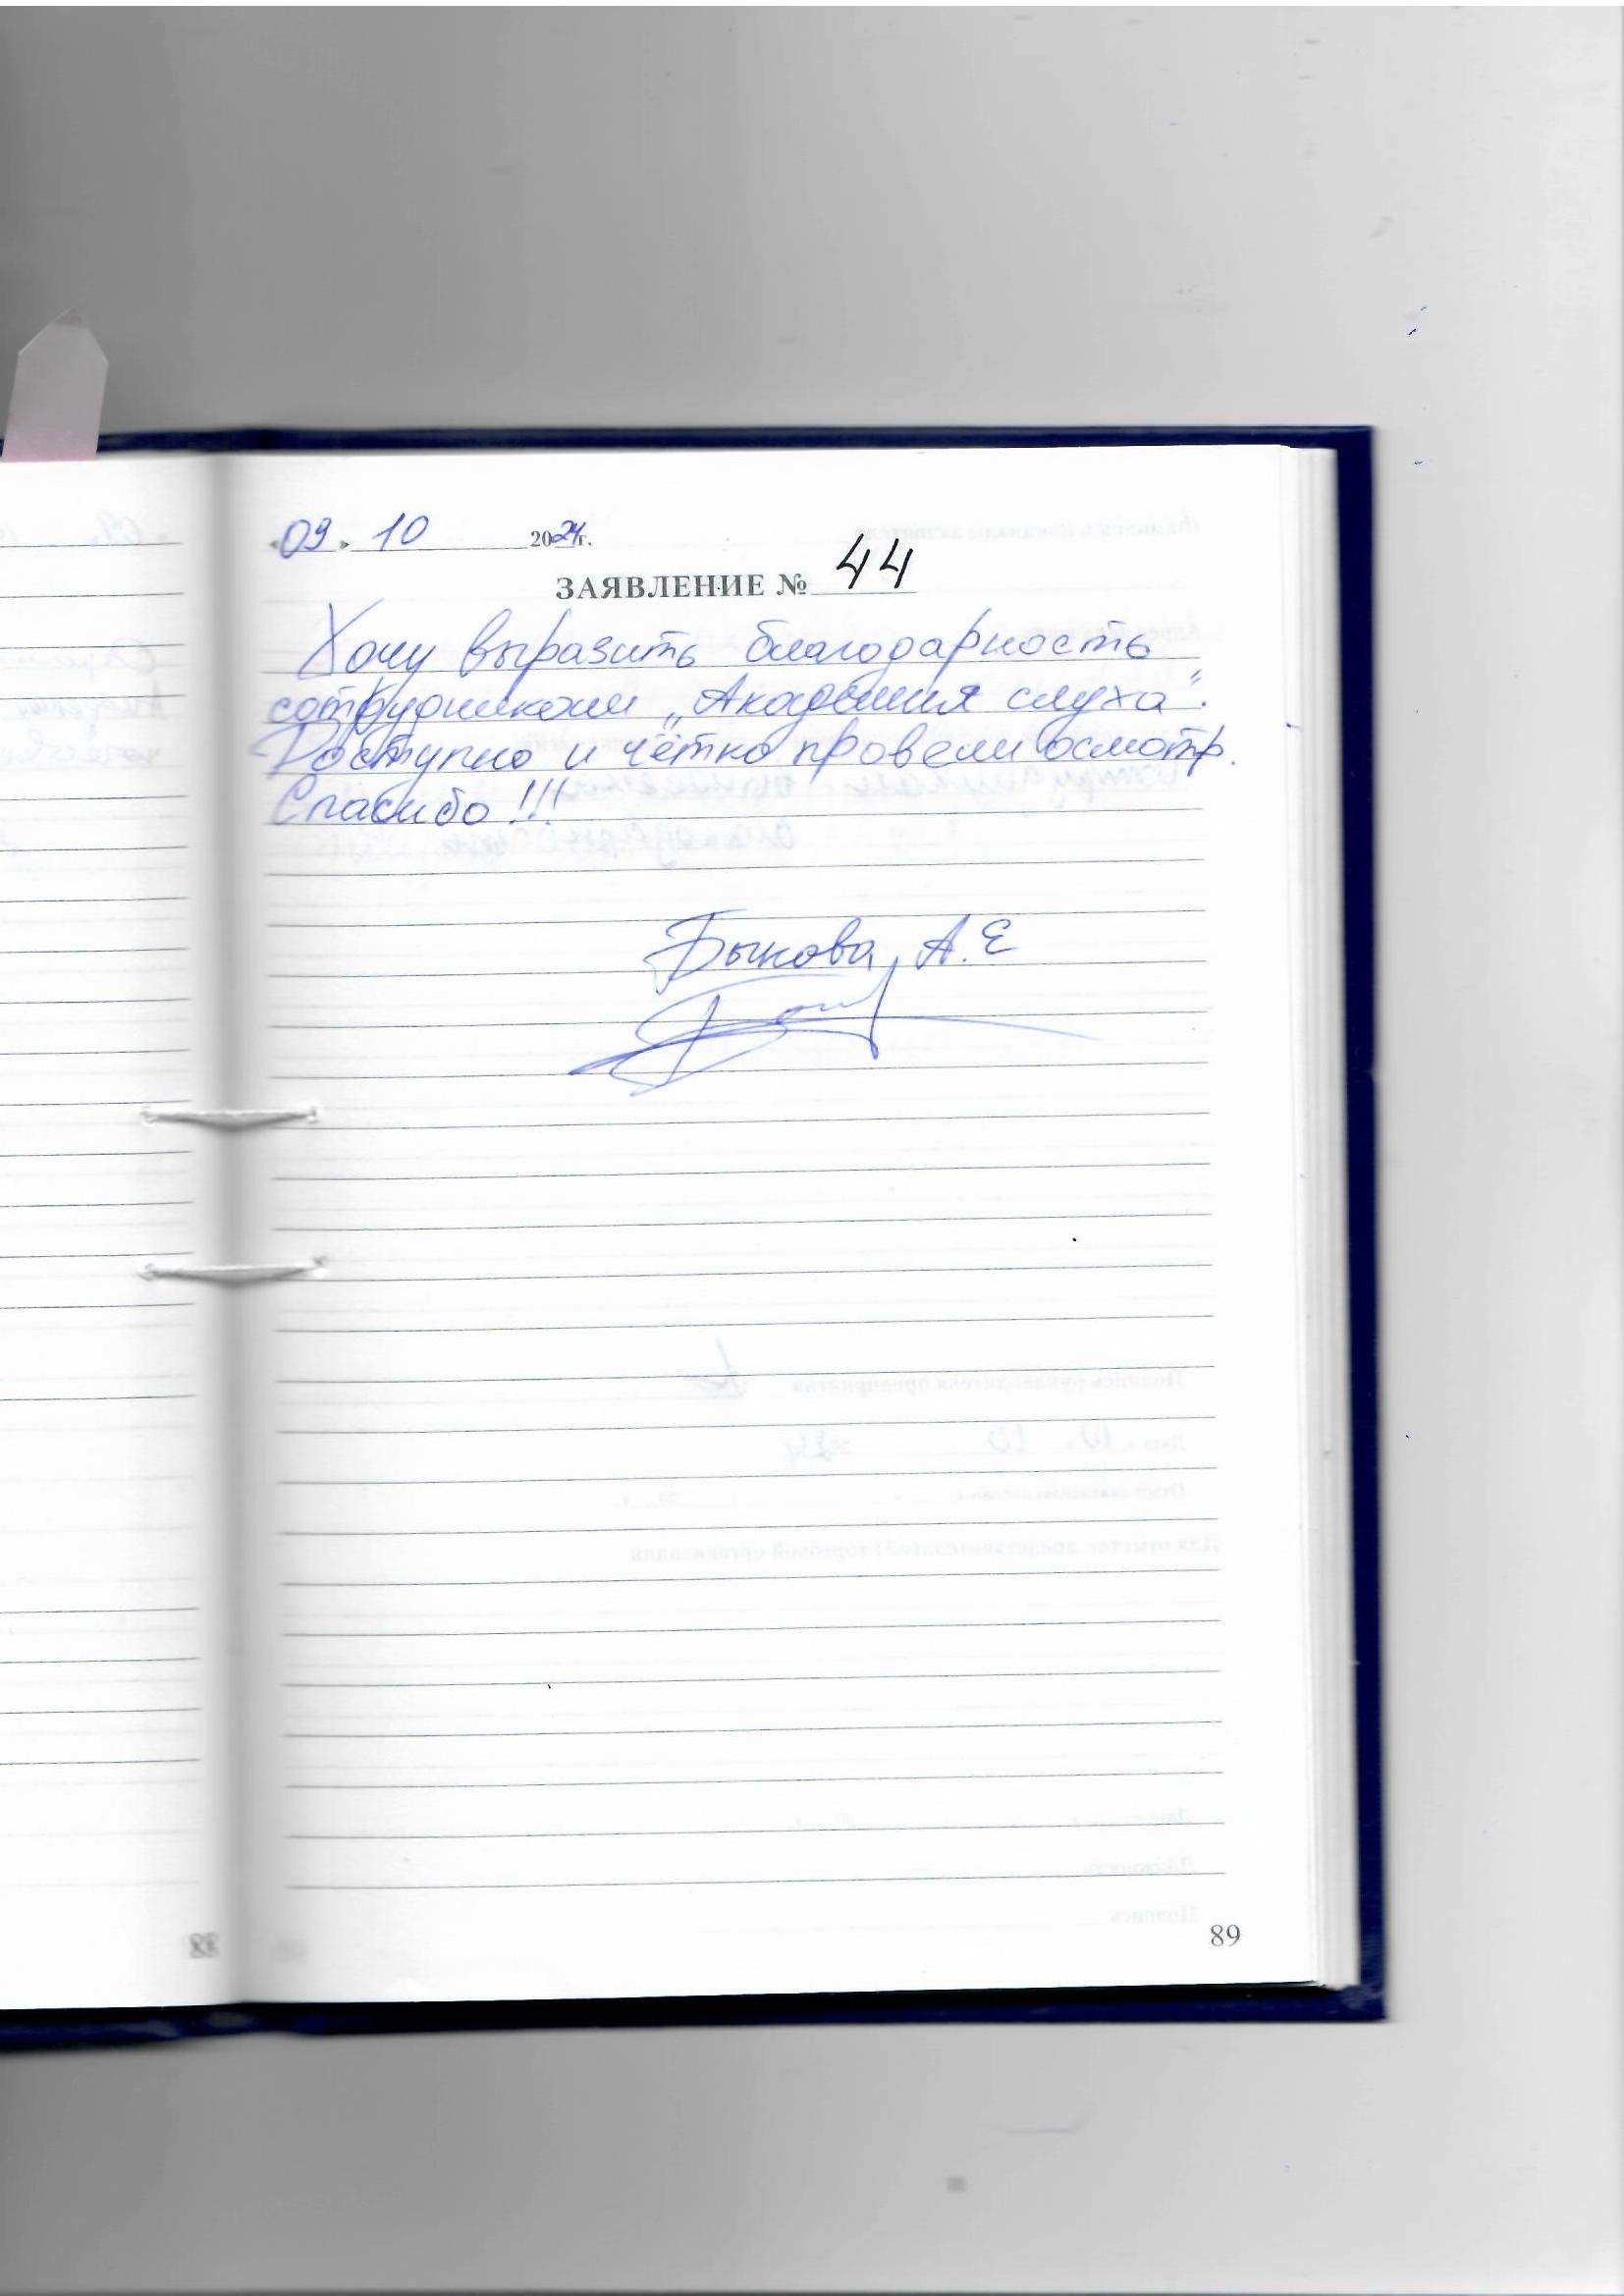 «09» 10 2024г.
ЗАЯВЛЕНИЕ № 44
Хочу выразить благодарность
сотрудникам „Академия слуха".
Доступно и чётко провели осмотр.
Спасибо!!!
Быкова А.Е
88
89